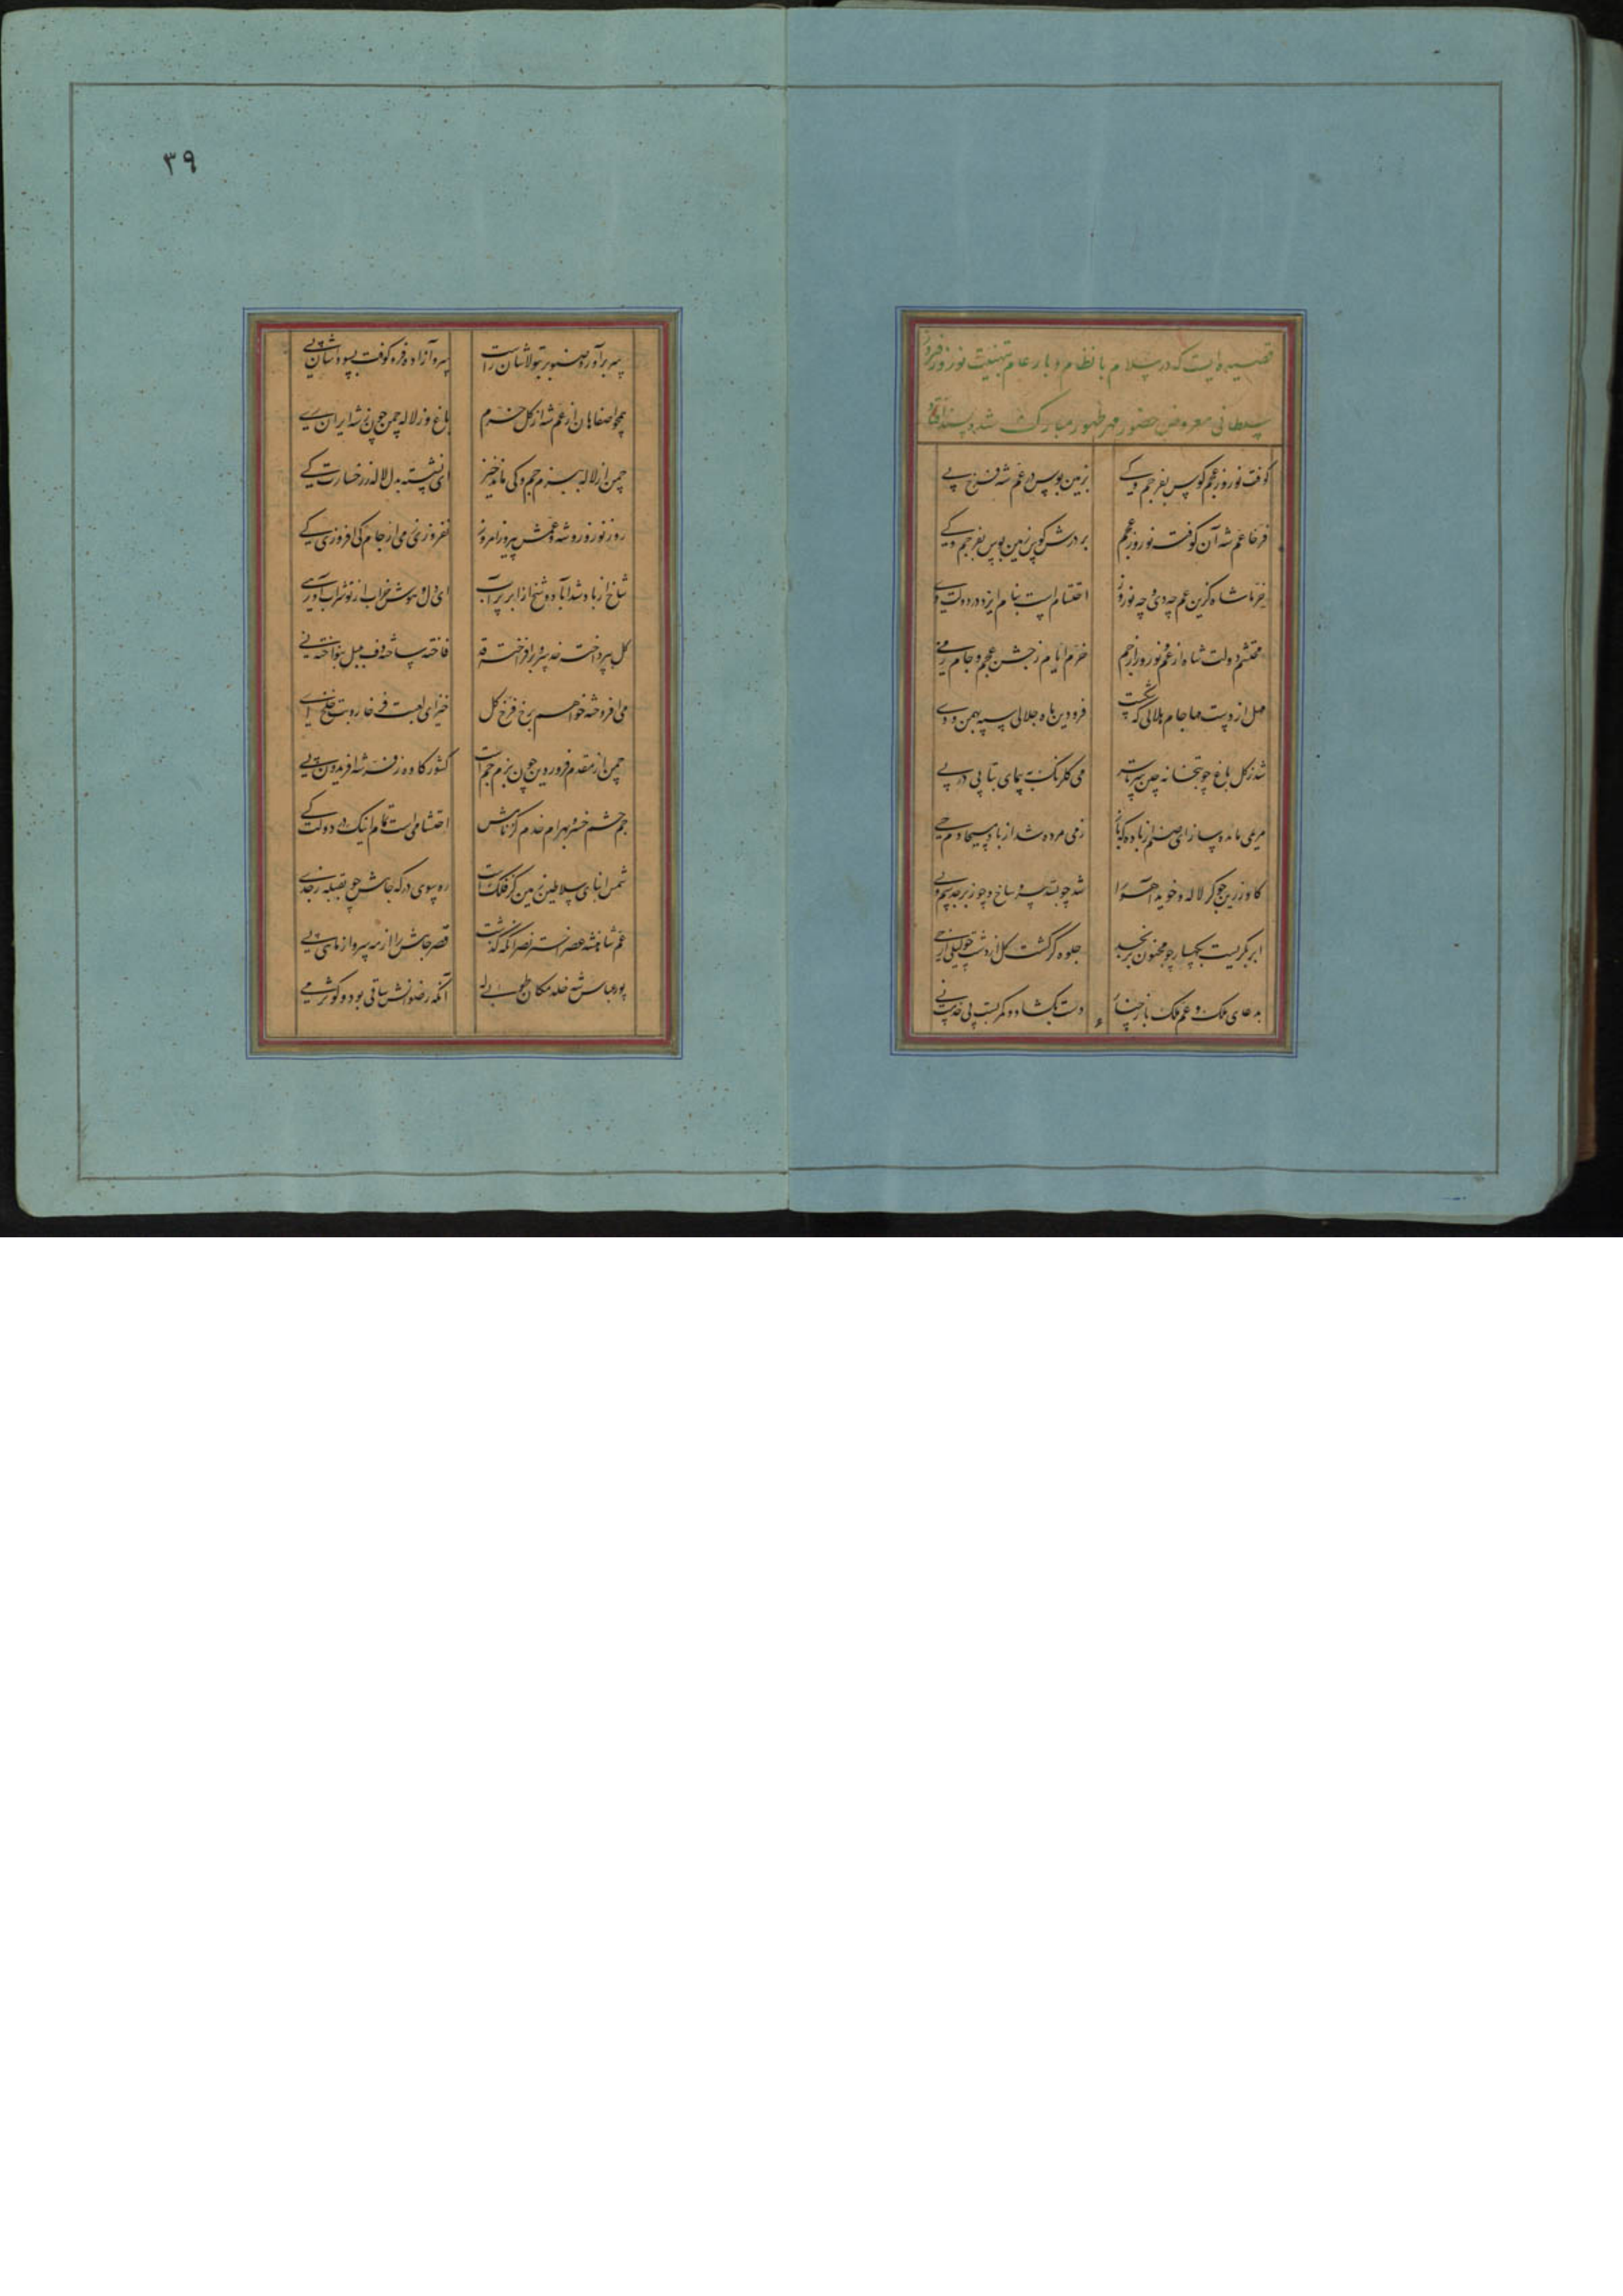 قصیده ایست که در سلام با نظام و بار عام تهنیت نوروز فیروز
سلطانی معروض حضور مهر ظهور مبارک شد و پسند افتاد
کوفت نوروز عجم کوس بفر جم و کی
زمین بوس در عم شه فرخ پی
فرخا عم شه آن کوفت نوروز عجم
بر درش کوس زمین بوس بفر جم و کی
خرما شاه کزین عم چه دی و چه نوروز
احتشام است بنام ایزد در دولت وی
محتشم دولت شاه از عم و نوروز از جم
خرم ایام ز جشن عجم و جام می
مل از دست مها جام هلالی که شکست
فرودین ماه جلالی سپه بهمن و دی
شد ز کل باغ چو بتخانه چین
می کلرنک بپیمای پیاپی در پی
ای صنم از باده که باز
زمی مرده شد از باد مسیحا دم حی
کاو زرین جو کر لاله و خوید
شد چو بسد سر شاخ و چو زبرجد
ابر بکریست بکهسار چو مجنون بر نجد
جلوه کر کشت کل از دشت چو لیلی از حی
بدعای ملک و عم ملک باز چنار
دست بکشاد و کمر بست پی خدمت نی
۳۹
سر برآورد صنوبر بتولا شان راست
سرو آزاده فره کوفت بسودا شان
همچو اصفاهان از عم شه از کل خرم
باغ وز لاله چمن چون ز شه ایران ری
چمن از لاله ببزم جم و کی ماند خیز
ای نشسته بدل لاله ز رخسارت کی
روز نوروز و شه و عمش پیروز امروز
نفروزی می از جام کی افروزی کی
شاخ از باد شد آباد و شخ از ابر پر آب
ای دل و هوش خراب از تو شراب آور
کل بپرداخت خد و سرو برافراخت قد
فاخته ساخته دف بلبل بنواخته نی
می افروخته خواهم برخ فرخ کل
خیز ای لعبت فرخار و بت خلخ
چمن از مقدم فروردین چون بزم جم است
کشور کاوه ز فر شه افریدون
جم حشم خسرو بهرام خدم کز نامش
احتشامی است تمام اینک در دولت کی
شمس ابنای سلاطین زمین کز فلک است
ره سوی درکه جاهش چو بقبله ز جدی
عم شاهنشه عصر اختر نصر آنکه کذشت
قصر جاهش را از مه سر و از ماهی پی
پور عباس شه خلد مکان طوبی له
آنکه رضوانش ساقی بود و کوثر می